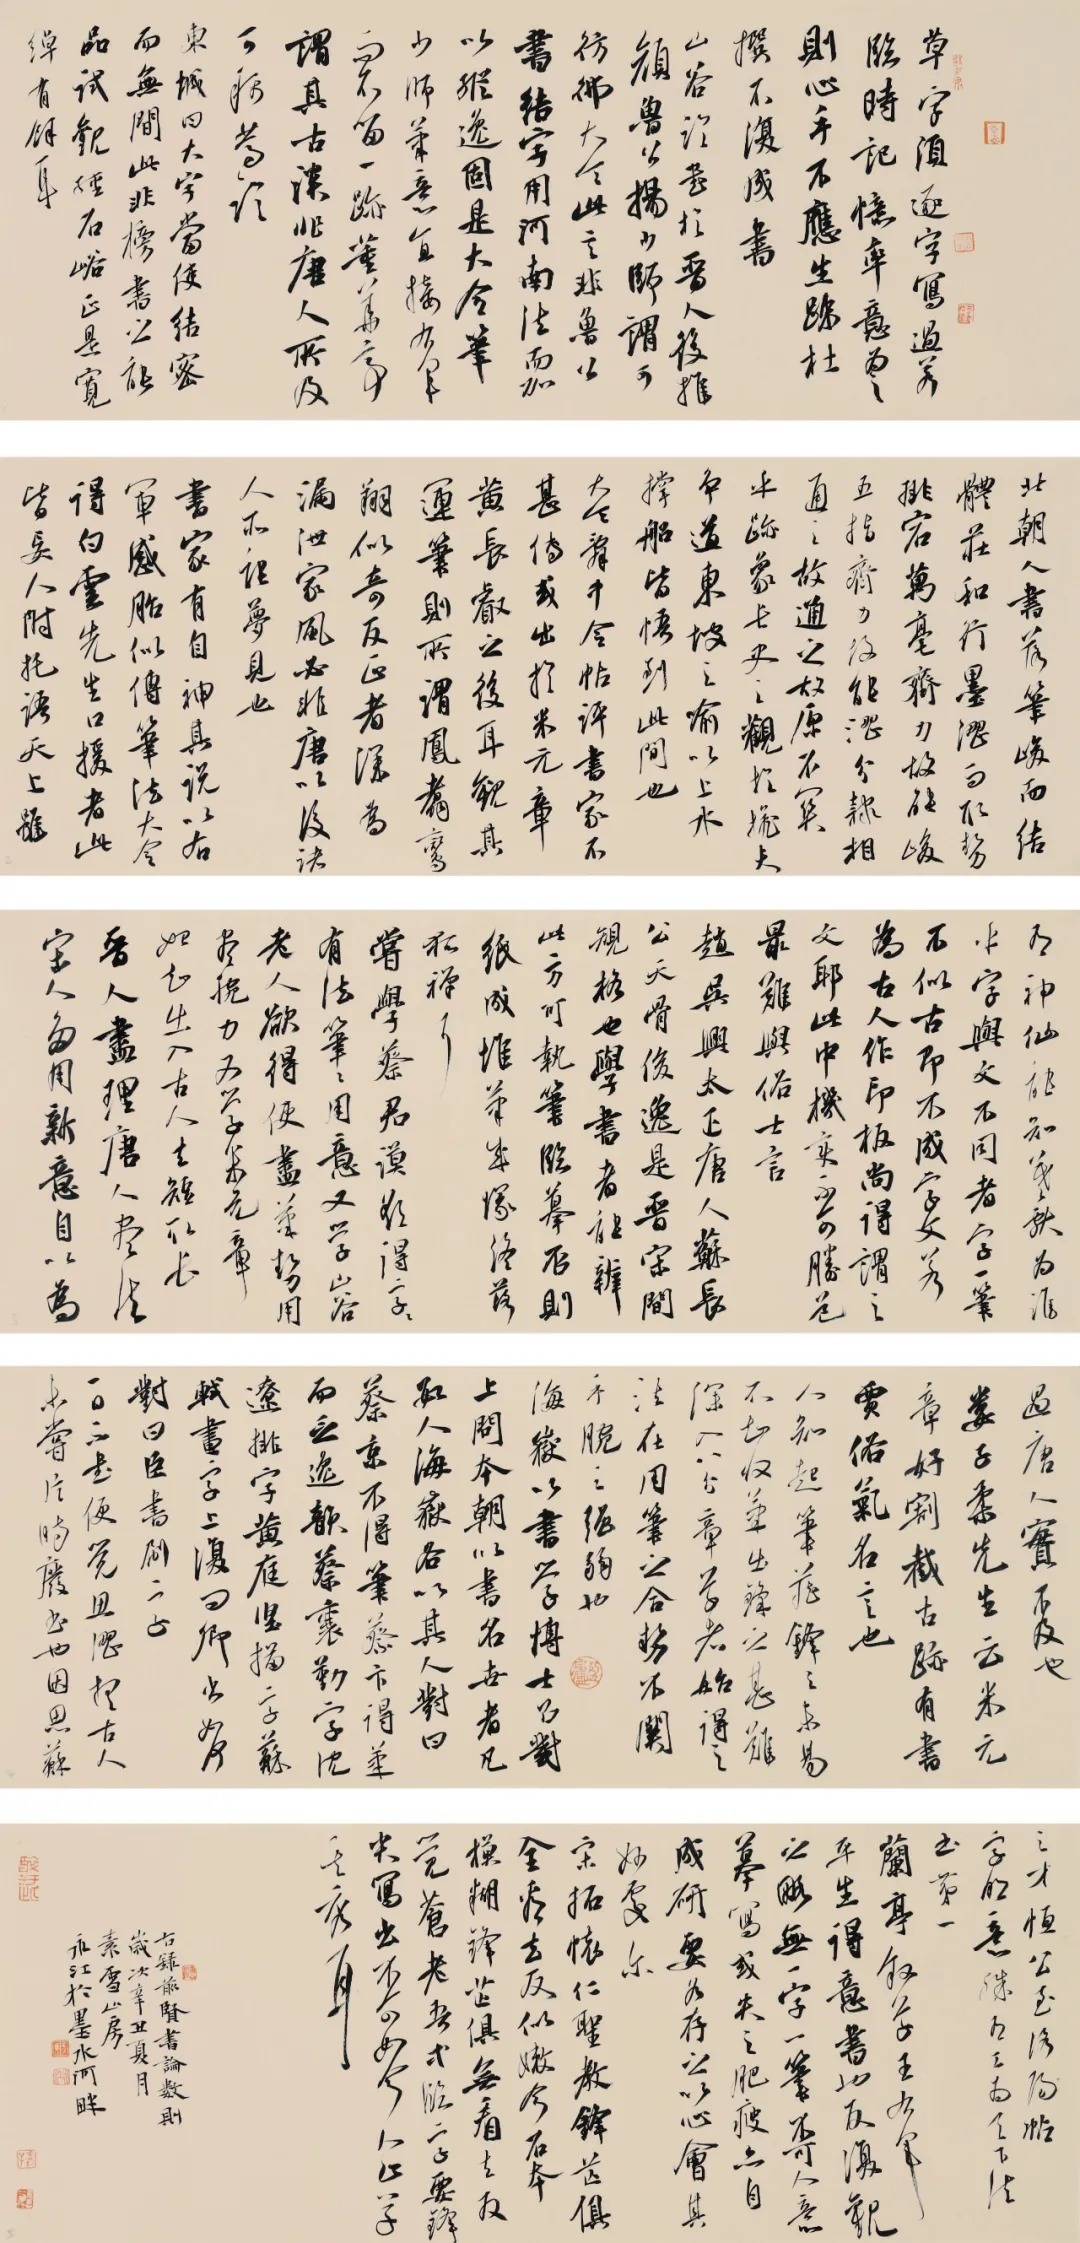 草字須逐字寫過若
臨時記憶率意為之
則心手不應生疏杜
撰不復成書
山谷論書於晉人後推
顏魯公楊少師謂可
彷彿大令此之非魯公
書結字用河南法而加
以縱逸固是大令筆
少師筆意直接右軍
而不留一跡董華亭
謂其古淡非唐人所及
可稱篤論
東坡曰大字當使結密
而無間此非榜書之能
品試觀經石峪正是寬
綽有餘耳
北朝人書落筆峻而結
體莊和行墨澀而取勢
排宕萬毫齊力故能峻
五指齊力故能澀分隸相
通之故原不關
乎跡象長史之觀於擔夫
爭道東坡之喻以上水
撐船皆悟到此間也
大令辭中令帖評書家不
甚傳或出於米元章
黃長睿之後耳觀其
運筆則所謂鳳翥鸞
翔似奇反正者深為
漏泄家風必非唐以後諸
人所詎夢見也
書家有自神其說以右
軍感胎似傳筆法大令
得白雲先生口授者此
皆妄人附托語天上雖
有神仙能知羲獻為誰
乎字與文不同者字一筆
不似古即不成字文若
為古人作印板尚得謂之
文耶此中機變不可勝道
最難與俗士言
趙吳興太正唐人蘇長
公天骨俊逸是晉宋間
規格也學書者能辨
此方可執筆臨摹否則
紙成堆筆成塚終落
狐禪耳
嘗學蔡君謨欲得字字
有法筆筆用意又學山谷
老人欲得使盡筆勢用
盡腕力又學米元章
始知出入古人去短取長
晉人盡理唐人盡法
宋人多用新意自以為
過唐人實不及也
婁子柔先生云米元
章好割截古跡有書
賈俗氣名言也
人知起筆藏鋒之未易
不知收筆出鋒之甚難
深入八分章草者始得之
法在用筆之合勢不關
手腕之強弱也
海嶽以書學博士召對
上問本朝以書名世者凡
數人海嶽各以其人對曰
蔡京不得筆蔡卞得筆
而乏逸韻蔡襄勒字沈
遼排字黃庭堅描字蘇
軾畫字上復曰卿書如何
對曰臣書刷字
一日不書便覺思澀想古人
未嘗片時廢書也因思蘇
之才恆公至洛陽帖
字明意殊有工為天下法
書第一
蘭亭敘草王右軍
平生得意書也反復觀
之略無一字一筆不可人意
摹寫或失之肥瘦亦自
成研要各存之以心會其
妙處爾
宋拓懷仁聖教鋒芒俱
全看去反似嫩今石本
模糊鋒芒俱無看去反
覺蒼老吾不臨字要鋒
尖寫出不可如今人只學
其秃耳
古錄前賢書論數則
歲次辛丑夏月
素雪山房
永江於墨水河畔